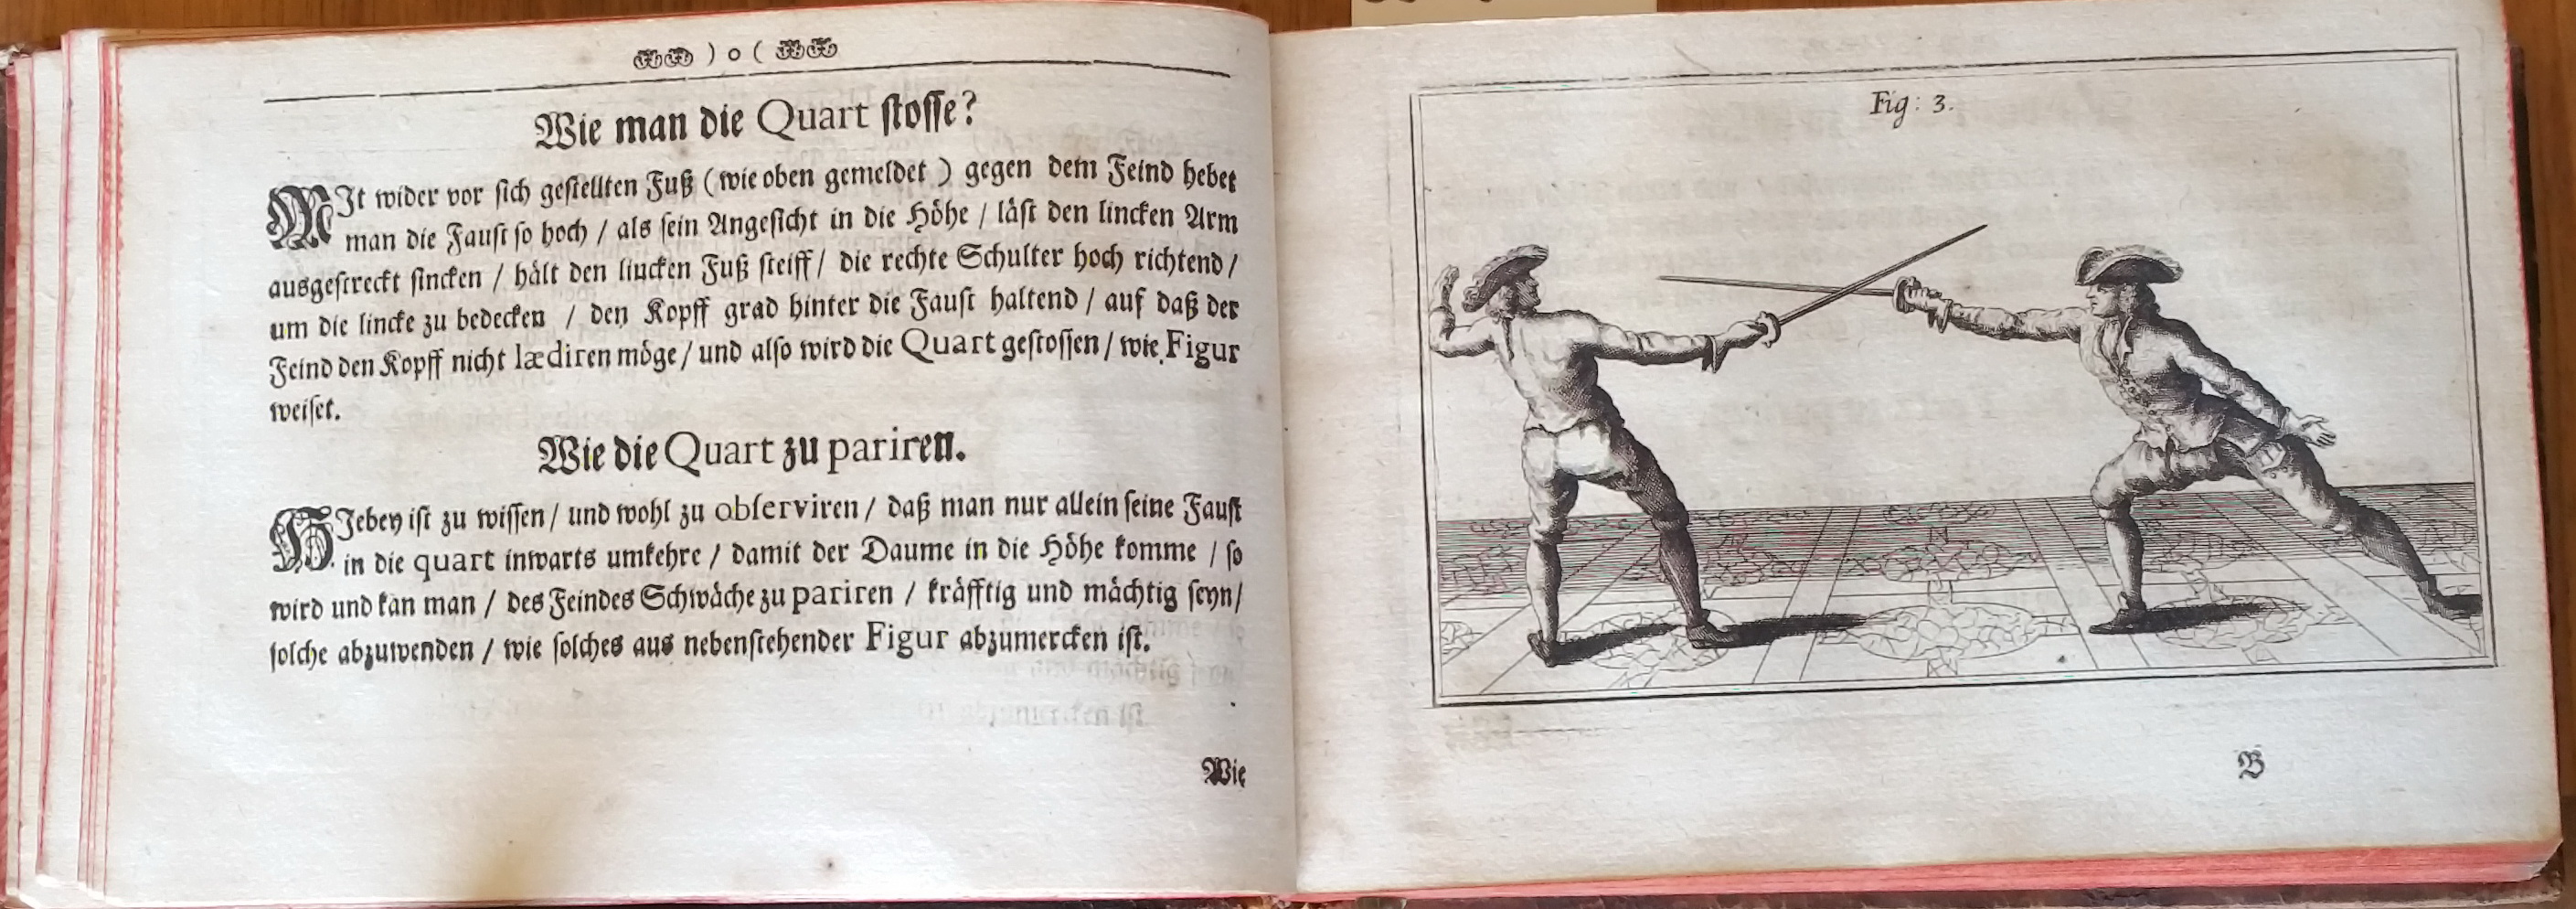 ) o (
Wie man die Quart ſtoſſe?
MIt wider vor ſich geſtellten Fuß ( wie oben gemeldet ) gegen dem Feind hebet
man die Fauſt ſo hoch / als ſein Angeſicht in die Höhe / läſt den lincken Arm
ausgeſtreckt ſincken / hält den lincken Fuß ſteiff / die rechte Schulter hoch richtend /
um die lincke zu bedecken / den Kopff grad hinter die Fauſt haltend / auf daß der
Feind den Kopff nicht lædiren möge / und alſo wird die Quart geſtoſſen / wie Figur
weiſet.
Wie die Quart zu pariren.
HIebey iſt zu wiſſen / und wohl zu obſerviren / daß man nur allein ſeine Fauſt
in die quart inwarts umkehre / damit der Daume in die Höhe komme / ſo
wird und kan man / des Feindes Schwäche zu pariren / kräfftig und mächtig ſeyn /
ſolche abzuwenden / wie ſolches aus nebenſtehender Figur abzumercken iſt.
Wie
Fig: 3.
B